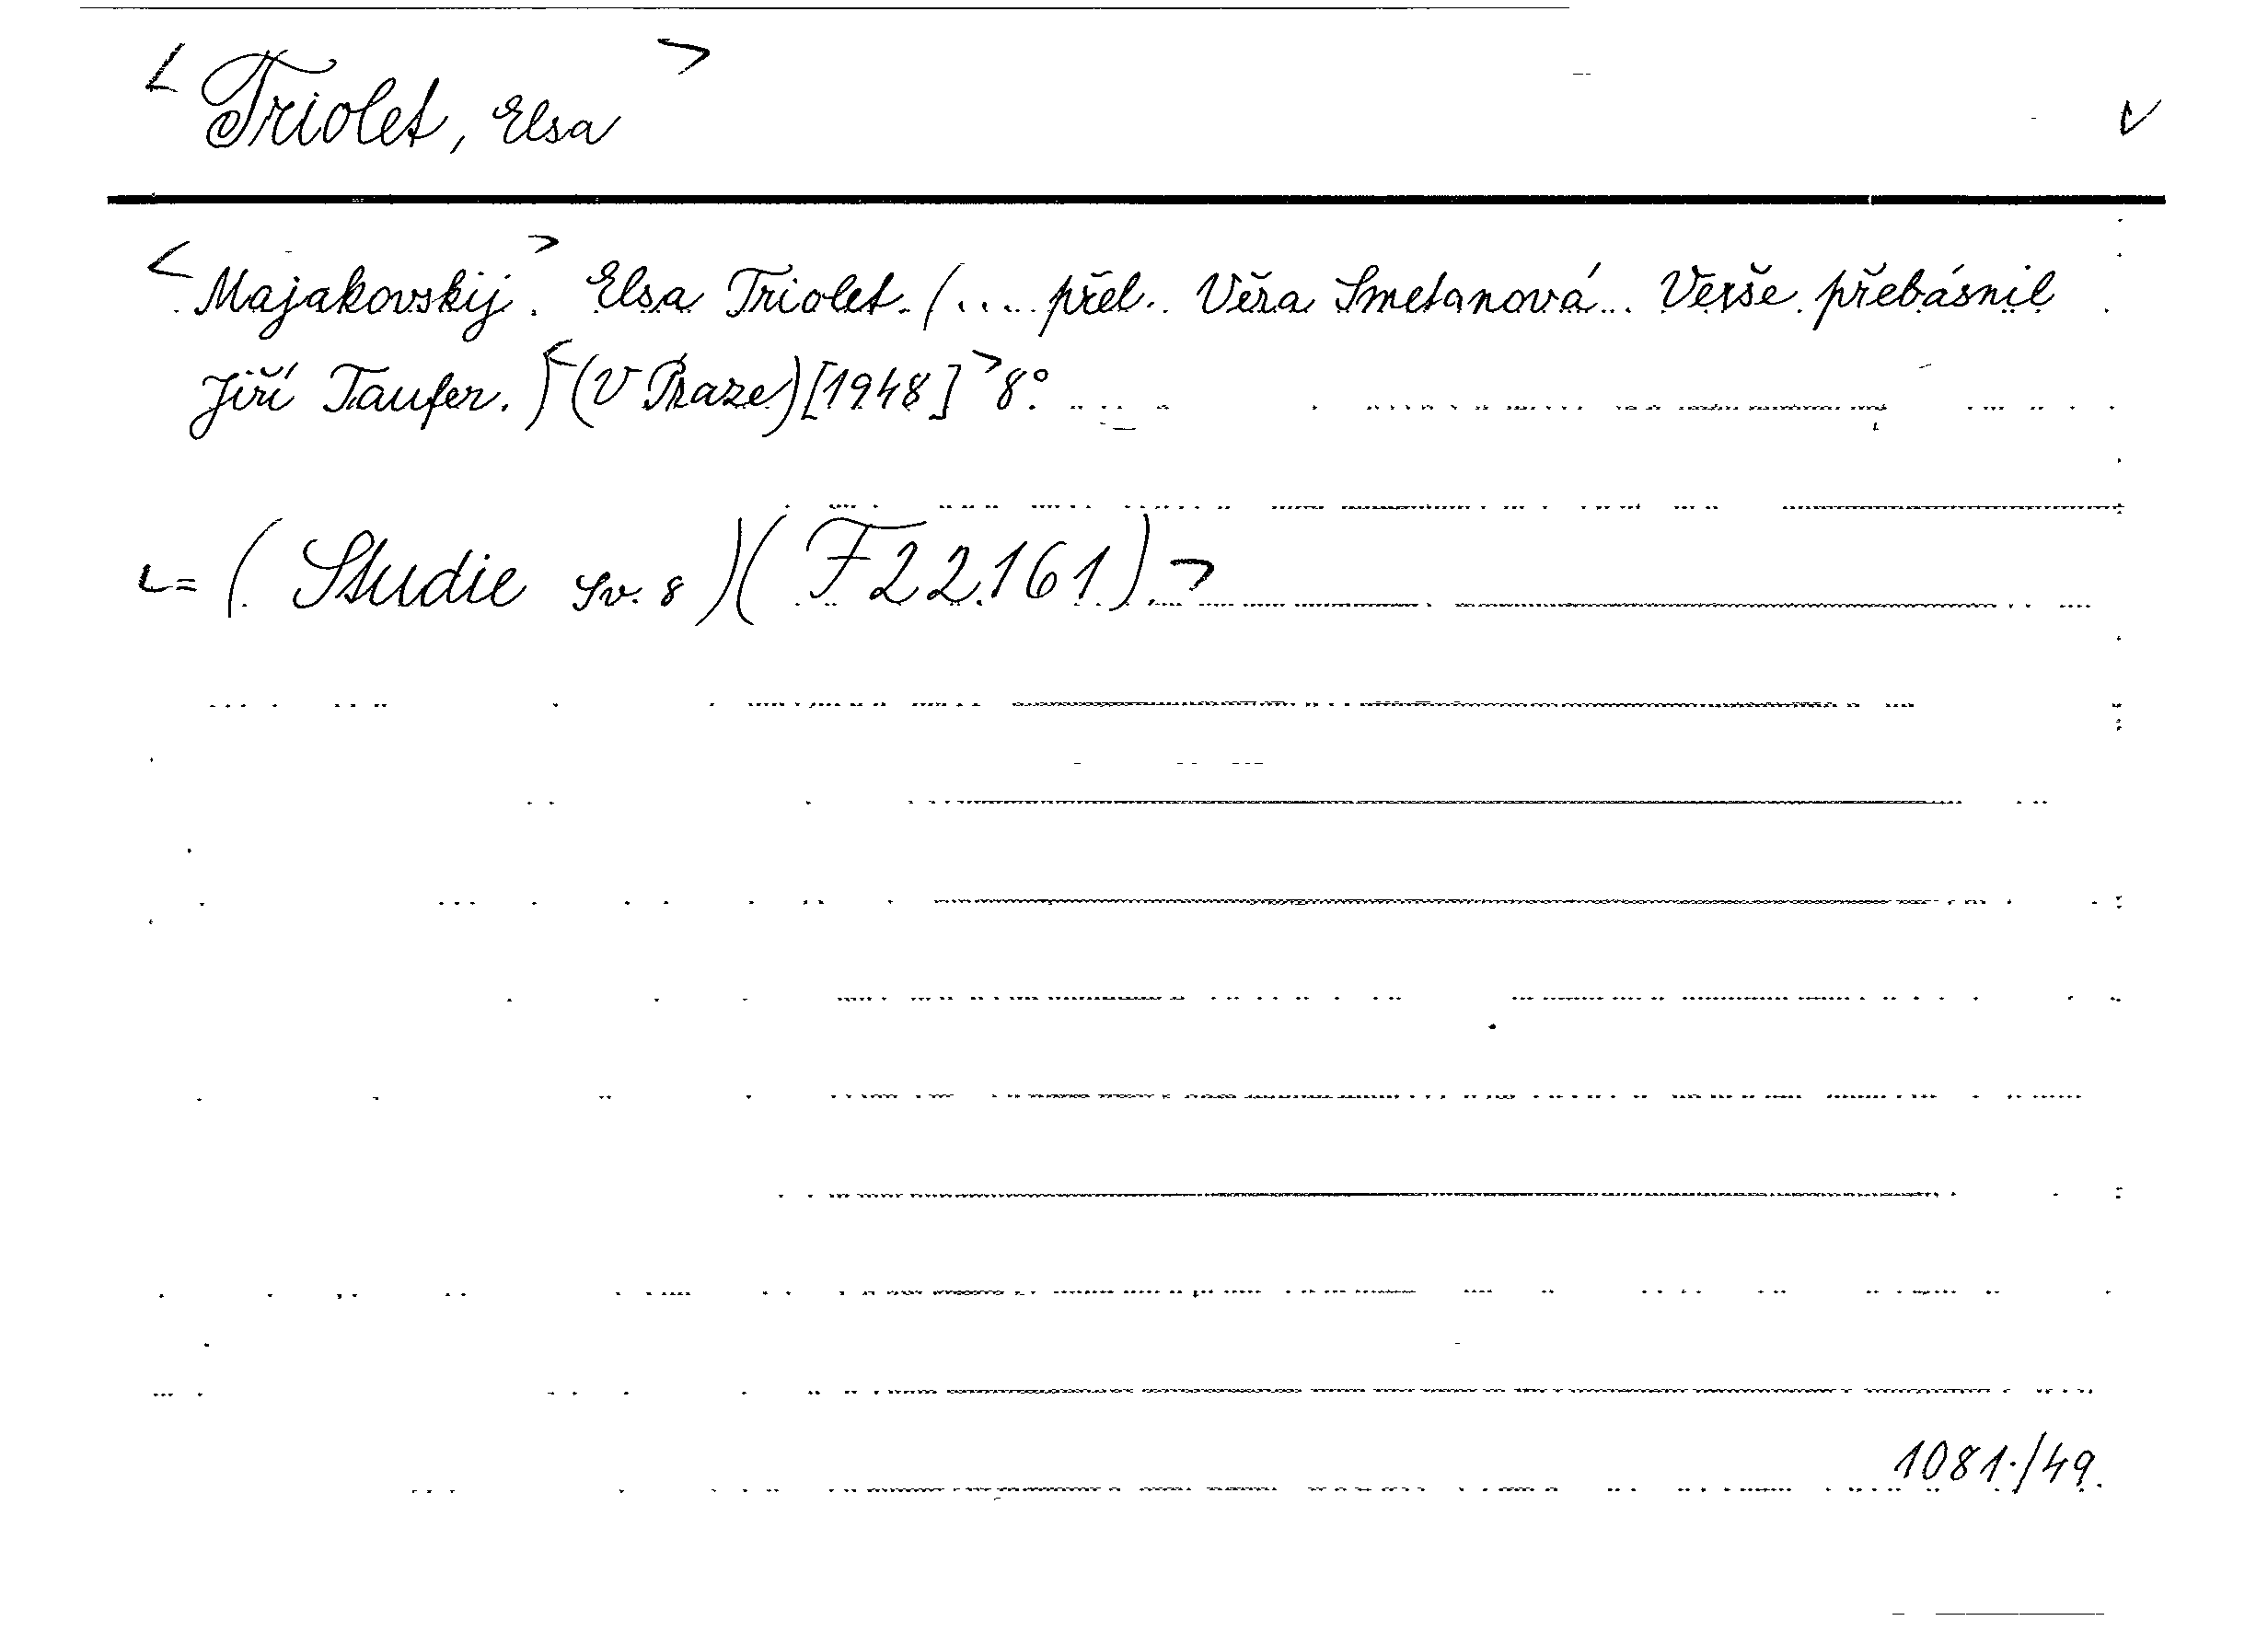 < Triolet, Elsa > v
< Majakovskij > . Elsa Triolet. (.... přel. Věra Smetanová... Verše přebásnil
Jiří Taufer.) < (V Praze) [1948] > 8°.
<= (Studie sv. 8) (F 22.161). >
1081./49.